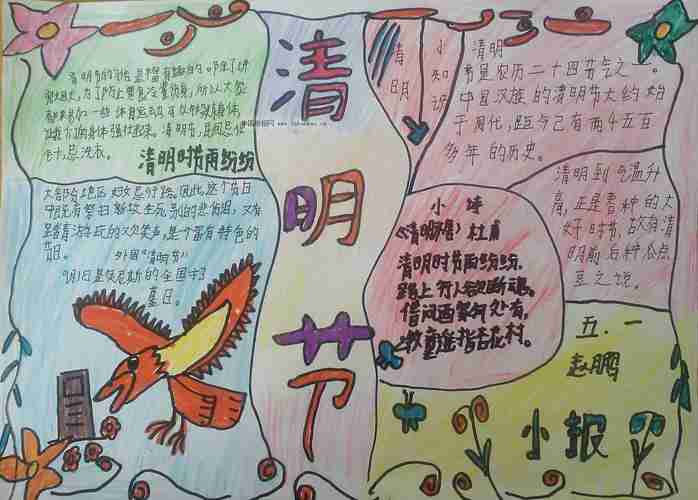 清明节的习俗是丰富有趣的。除了讲
究禁火,为了防止寒食冷餐伤身,所以大家
都来参加一些体育运动,可以锻炼身体,
让我们的身体强壮起来。清明节,民间忌使
针,忌洗衣。
清明时节雨纷纷
大部分地区妇女忌行路。因此,这个节日
中既有祭扫新坟生死别的悲伤泪,又有
踏青游玩的欢笑声,是个富有特色的
节日。
外国《清明节》
9月1日是
的全国守
墓日。
清
明
节
清
明
小
知
识
清明
节是农历二十四节气之一。
中国汉族的清明节大约始
于周代,距今已有两千五百
多年的历史。
清明到,气温升
高,正是春种的大
好时节,故有清
明前后种瓜点
豆之说。
小诗
《清明》杜甫
清明时节雨纷纷,
路上行人欲断魂。
借问酒家何处有,
牧童遥指杏花村。
五.一
赵鹏
小报